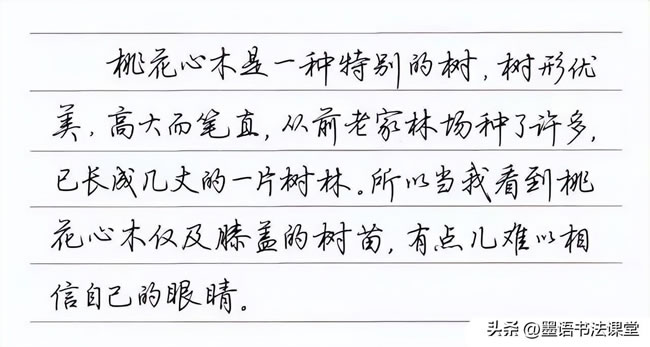 桃花心木是一种特别的树，树形优
美，高大而笔直，从前老家林场种了许多，
已长成几丈的一片树林。所以当我看到桃
花心木仅及膝盖的树苗，有点儿难以相
信自己的眼睛。
头条 @墨语书法课堂